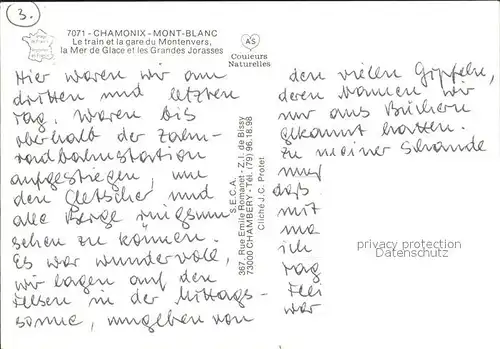 3.
7071 - CHAMONIX - MONT-BLANC
Le train et la gare du Montenvers,
la Mer de Glace et les Grandes Jorasses
AS
Couleurs
Naturelles
Hier waren wir am
dritten und letzten
Tag, waren bis
oberhalb der Zahn-
radbahnstation
aufgestiegen, um
den Gletscher und
alle Berge ringsum
sehen zu können.
Es war wundervoll,
wir lagen auf den
Felsen in der Mittags-
sonne, umgeben von
S.E.C.A.
367, Rue Emile Romanet - Z.I. de Bissy
73000 CHAMBERY - Tél. (79) 96.18.98
Cliché J.C. Protet
den vielen Gipfeln,
deren Namen wir
nur aus Büchern
gekannt hatten.
Zu meiner Schande
muß
daß
mit
ma
ich
rag
war
privacy protection
Datenschutz